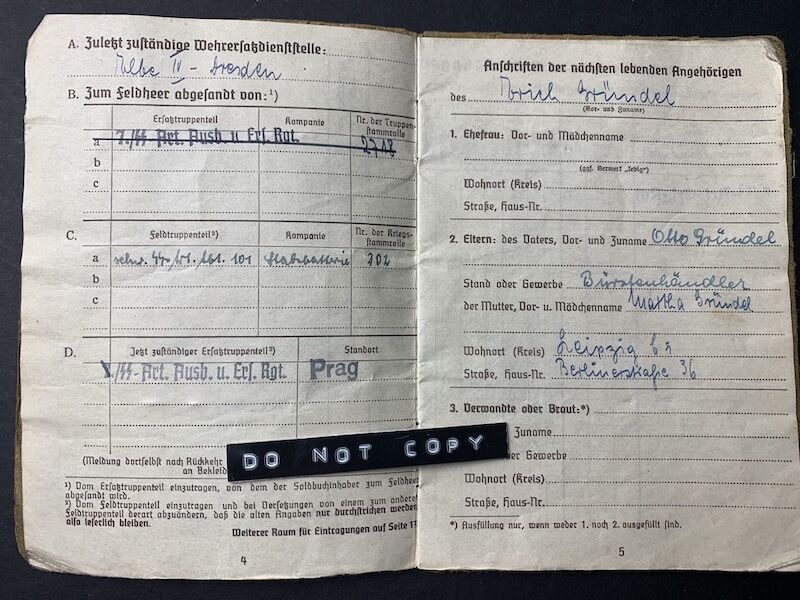 A. Zuletzt zuständige Wehrersatzdienststelle:
Elbe IV - Dresden
B. Zum Feldheer abgesandt von:¹)
Ersatztruppenteil Kompanie Nr. der Truppen-
stammrolle
a 7./SS Art. Ausb. u. Ers. Rgt. 2718
b
c
C. Feldtruppenteil²) Kompanie Nr. der Kriegs-
stammrolle
a schw. SS-Art. Abt. 101 Stabsbatterie 202
b
c
D. Jetzt zuständiger Ersatztruppenteil²) Standort
/SS-Art. Ausb. u. Ers. Rgt. Prag
(Meldung dortselbst nach Rückkehr
an Bekleid
¹) Vom Ersatztruppenteil einzutragen, von dem der Soldbuchinhaber zum Feldheer
abgesandt wird.
²) Vom Feldtruppenteil einzutragen und bei Versetzungen von einem zum anderen
Feldtruppenteil derart abzuändern, daß die alten Angaben nur durchstrichen werden,
also leserlich bleiben.
Weiterer Raum für Eintragungen auf Seite 17
4
Anschriften der nächsten lebenden Angehörigen
des Erich Gründel
(Vor- und Zuname)
1. Ehefrau: Vor- und Mädchenname
(ggf. Vermerk „ledig")
Wohnort (Kreis)
Straße, Haus-Nr.
2. Eltern: des Vaters, Vor- und Zuname Otto Gründel
Stand oder Gewerbe Bürstenhändler
der Mutter, Vor- u. Mädchenname Martha Gründel
Wohnort (Kreis) Leipzig
Straße, Haus-Nr. Berlinerstraße 36
3. Verwandte oder Braut:*)
Zuname
der Gewerbe
Wohnort (Kreis)
Straße, Haus-Nr.
*) Ausfüllung nur, wenn weder 1. noch 2. ausgefüllt sind.
5
DO NOT COPY